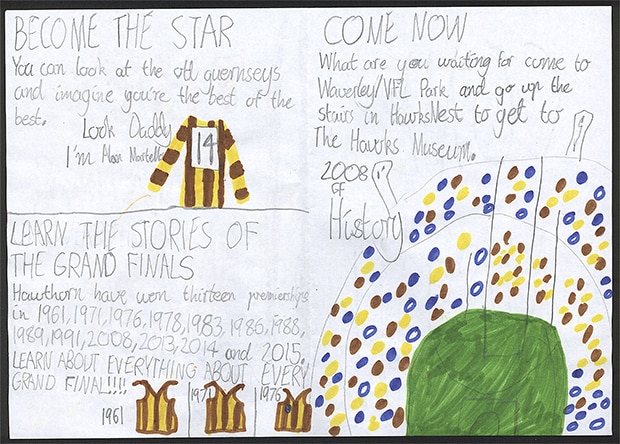 BECOME THE STAR
You can look at the old guernseys
and imagine you're the best of the
best.
Look Daddy
I'm Alan Martello
14
LEARN THE STORIES OF
THE GRAND FINALS
Hawthorn have won thirteen premierships
in 1961, 1971, 1976, 1978, 1983, 1986, 1988,
1989, 1991, 2008, 2013, 2014 and 2015.
LEARN ABOUT EVERYTHING ABOUT EVERY
GRAND FINAL!!!!
1961
1971
1976
COME NOW
What are you waiting for come to
Waverley/VFL Park and go up the
stairs in HawksNest to get to
The Hawks Museum.
2008
GF
History